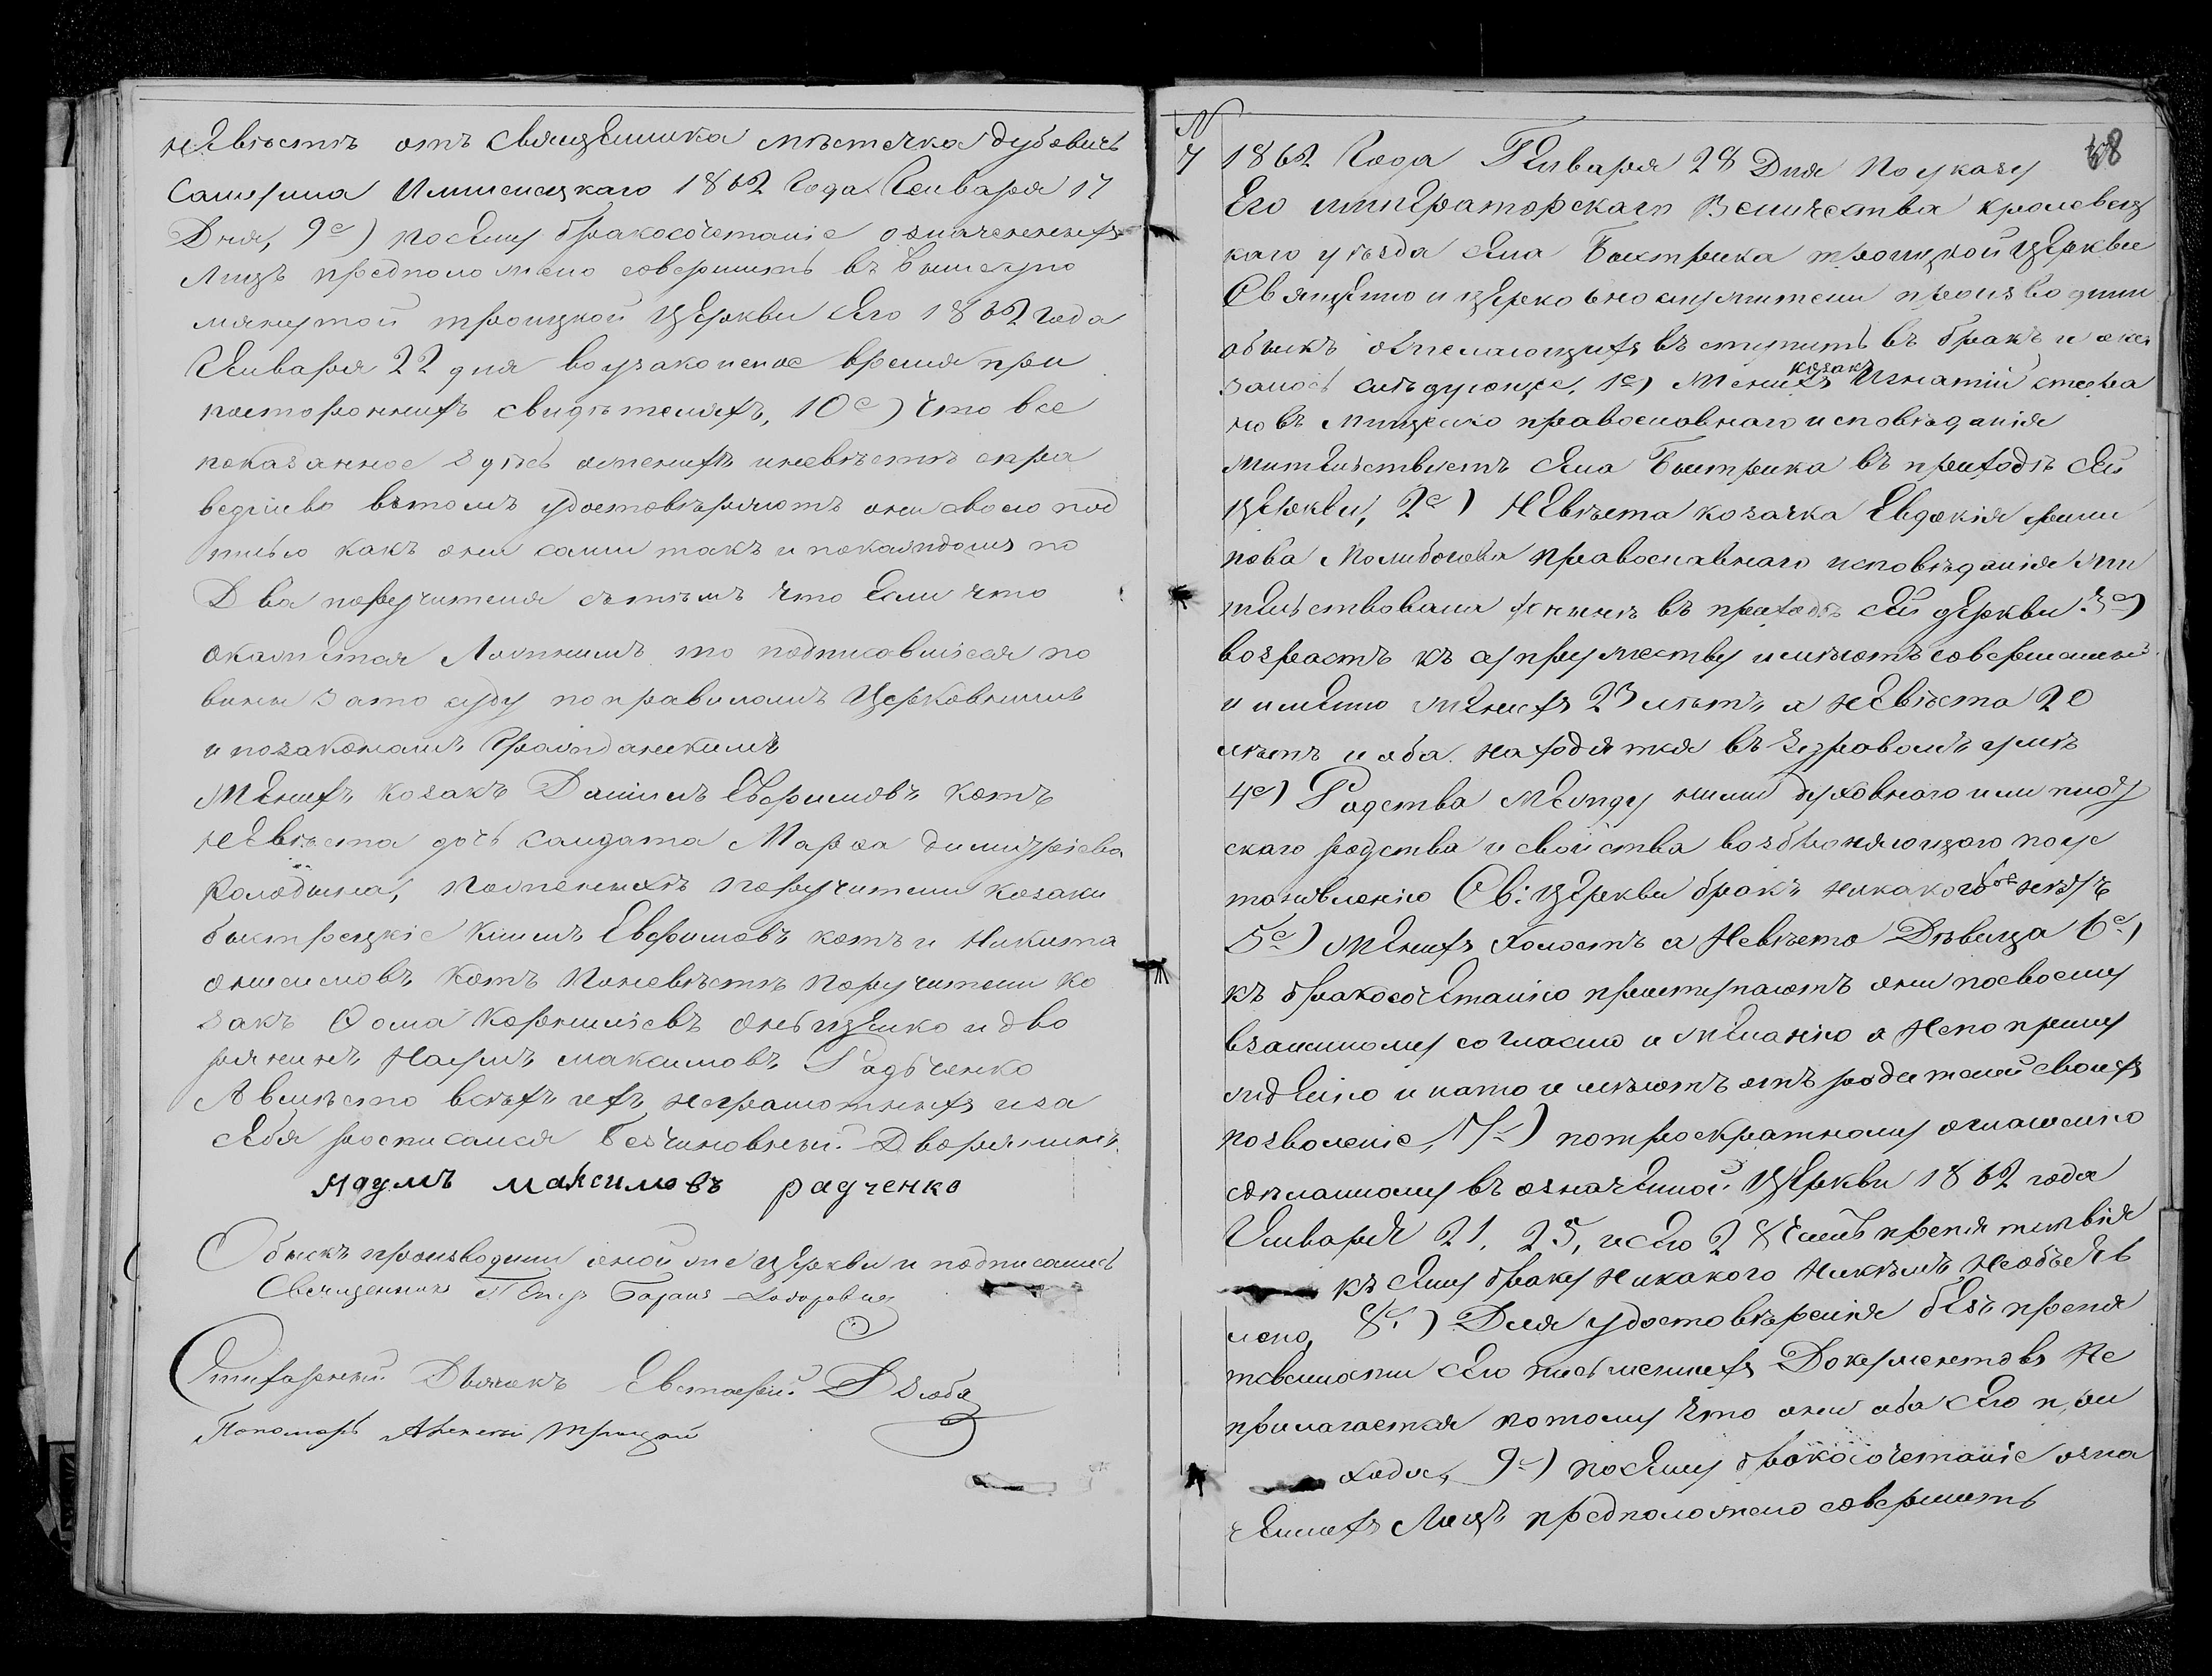 невѣстѣ отъ священника мѣстечка дубовичъ
1862 года Генваря 17
Дня, 9е) посему бракосочетаніе означенныхъ
лицъ предположено совершить въ вышеупо
мянутой троицкой церкви сего 1862 года
Генваря 22 дня во узаконеное время при
постороннихъ свидѣтеляхъ, 10е) Что все
показанное здѣсь оженихѣ иневѣстѣ спра
ведливо вътомъ удостовѣряютъ они своею под
писью какъ они сами такъ и покаждомъ по
Два поручителя сътѣмъ что если что
окажется Ложнымъ то подписавшіеся по
винны зато суду по правиламъ Церковнымъ
и позаконамъ Гражданскимъ
Женихъ козакъ Даніилъ Евфимовъ котъ
невѣста дочь салдата Марфа димитріева
Колодина, Поженихѣ поручители козаки
быстрецкіе Климъ Евфимовъ котъ и Никита
онисимовъ котъ Поневѣстѣ поручители ко
закъ Фома Корниліевъ и дво
рянинъ Наумъ максимовъ Радьченко
А вмѣсто всѣхъ ихъ неграмотныхъ иза
себя росписался Безчиновный Дворянинъ
Наумъ максимовъ радченко
Обыскъ производили оной же церкви и подписались
Священникъ Петръ
Дьячокъ Евстафій Дзюба
Пономарь троицкій
N 68
7 1862 Года Генваря 28 Дня По указу
Его императорскаго Величества кролевец
каго уѣзда села Быстрика троицкой Церкви
Священно и церковно служители производили
обыскъ ожелающихъ въступить въ бракъ и ока
козакъ
залось слѣдующее, 1е) Женихъ Игнатій стефа
новъ Мищенко православнаго исповѣданія
жительствуетъ села Быстрика въ приходѣ сей
церкви, 2е) Невѣста козачка Евдокія
пова православнаго исповѣданія жи
тельствовала донынѣ въ приходѣ сей церкви 3е)
возрастъ къ супружеству имѣютъ совершенный
и именно женихъ 23 лѣтъ а невѣста 20
лѣтъ и оба находятся въ здравомъ умѣ
4е) Родства Между ними духовнаго или плот
скаго родства и свойства возбраняющаго поус
тановленію Св: церкви бракъ никакого нѣтъ
5е) женихъ холостъ а Невѣста Дѣвица 6е)
къ бракосочетанію приступаютъ они посвоему
взаимному согласію и желанію а Непоприну
жденію и нато имѣютъ отъ родителей своихъ
позволеніе, 7е) потроекратному оглашенію
сдѣланному въ означенной Церкви 1862 года
Генваря 21, 25, исего 28 чиселъ препятствія
къ сему браку Никакого Никѣмъ Необъяв
лено, 8е) Для удостовѣренія безъ препя
тсвенности сего письменныхъ Документовъ Не
прилагается потому что они оба сего при
хода, 9е) посему бракосочетаніе озна
ченныхъ Лицъ предположено совершить